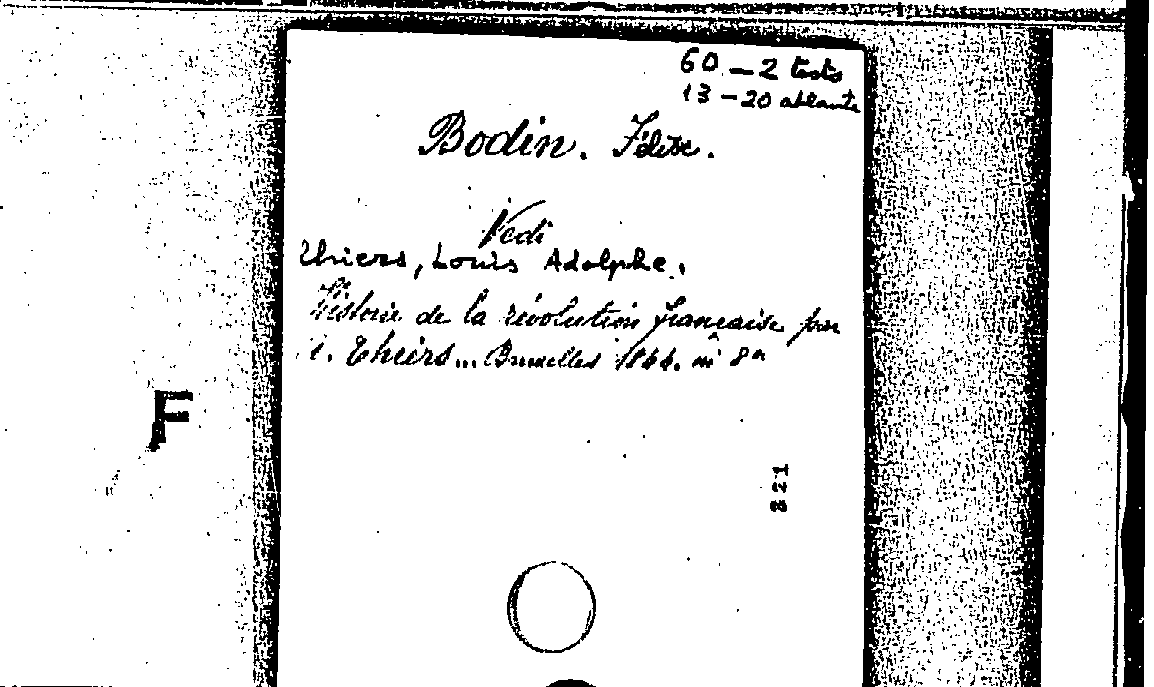 60 — 2 testo
13 — 20 atlante
Bodin. Félix.
Vedi
Thiers, Louis Adolphe.
Histoire de la révolution française par
Thiers... Bruxelles in 8°
F
821